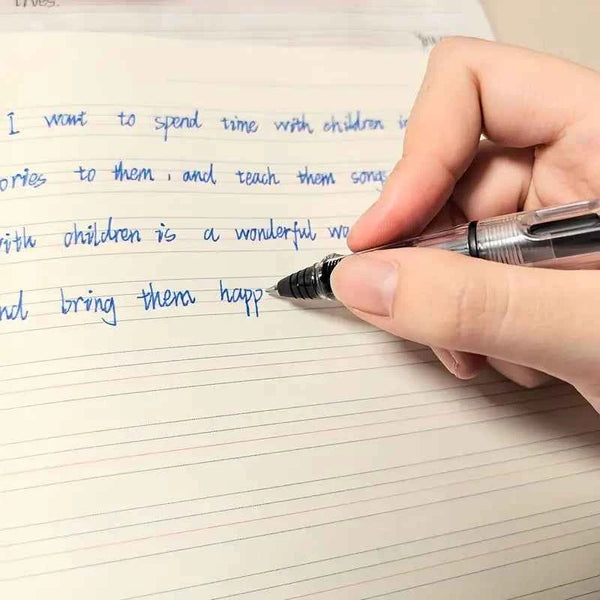 ives.
I want to spend time with children in
ories to them, and teach them songs
with children is a wonderful wo
nd bring them happ